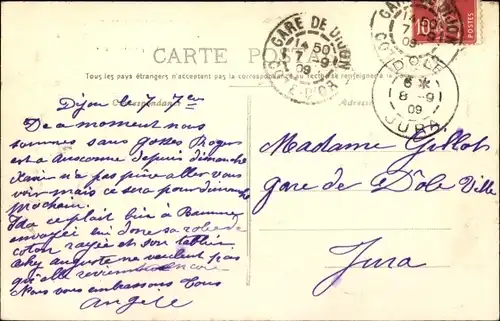 GARE DE DIJON
14 50
7 -9
09
COTE-D'OR
GARE DE DIJON
10
CARTE POSTALE
Tous les pays étrangers n'acceptent pas la correspondance au recto se renseigner
DOLE
6 *
8 -9
09
JURA
Correspondance
Adresse
Dijon le 7
De a moment nous
sommes sans gosses Roger
est a Aussonne depuis dimanche
Xavier n'a pas puère aller vous
voir mais ce sera pour dimanche
prochain.
Ida ce plait bien à Beaune
envoyée lui done sa robe de
coton rayée et son tablier
auguste ne veulent pas
qu'elle revienne encore
Nous vous embrassons tous
Angèle
Madame Gollot
gare de Dôle Ville
Jura